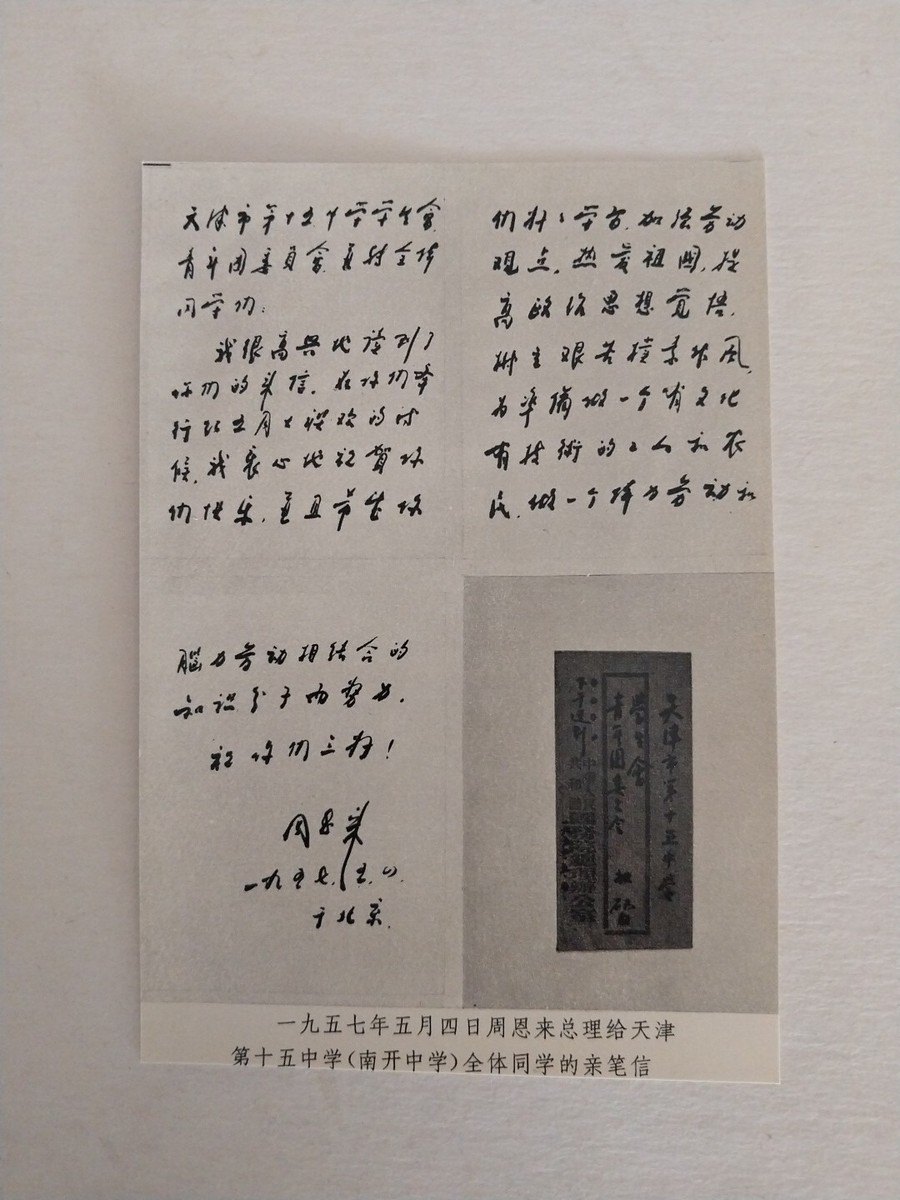 天津市第十五中学学生会、
青年团委員會并转全体
同学们：
我很高兴地读到了
你们的来信。在你们举
行庆五月大联欢的时
候，我衷心地祝贺你
们快乐，并且希望你
们好好学习，加强劳动
观点，热爱祖国，提
高政治思想觉悟，
树立艰苦朴素作风，
为準備做一个有文化
有技術的工人和农
民，做一个体力劳动和
脑力劳动相结合的
知识分子而努力。
祝你们三好！
周恩来
一九五七.五.四.
于北京.
天津市第十五中学
学生会
青年团委员会
中華人民
共和國
國務院總理辦公室
一九五七年五月四日周恩来总理给天津
第十五中学(南开中学)全体同学的亲笔信